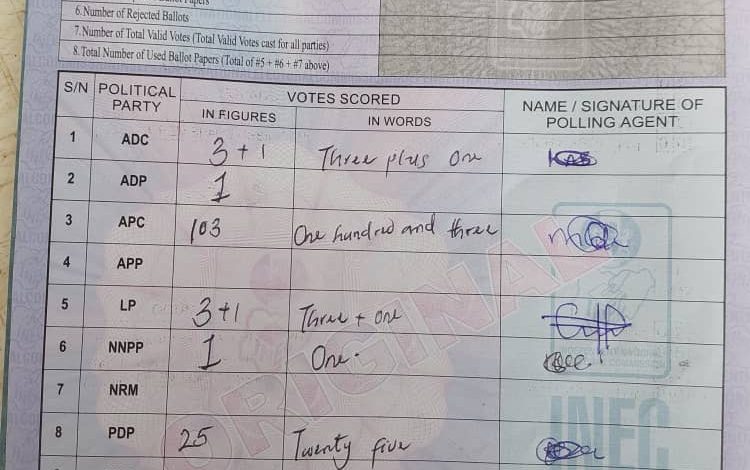 6. Number of Rejected Ballots
7. Number of Total Valid Votes (Total Valid Votes cast for all parties)
8. Total Number of Used Ballot Papers (Total of #5 + #6 + #7 above)
S/N POLITICAL PARTY VOTES SCORED NAME / SIGNATURE OF POLLING AGENT
IN FIGURES IN WORDS
1 ADC 3+1 Three plus One
2 ADP 1
3 APC 103 One hundred and three
4 APP
5 LP 3+1 Three + one
6 NNPP 1 One.
7 NRM
8 PDP 25 Twenty five
ORIGINAL
INEC